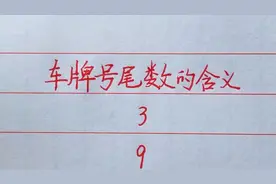 车牌号尾数的含义
3
9